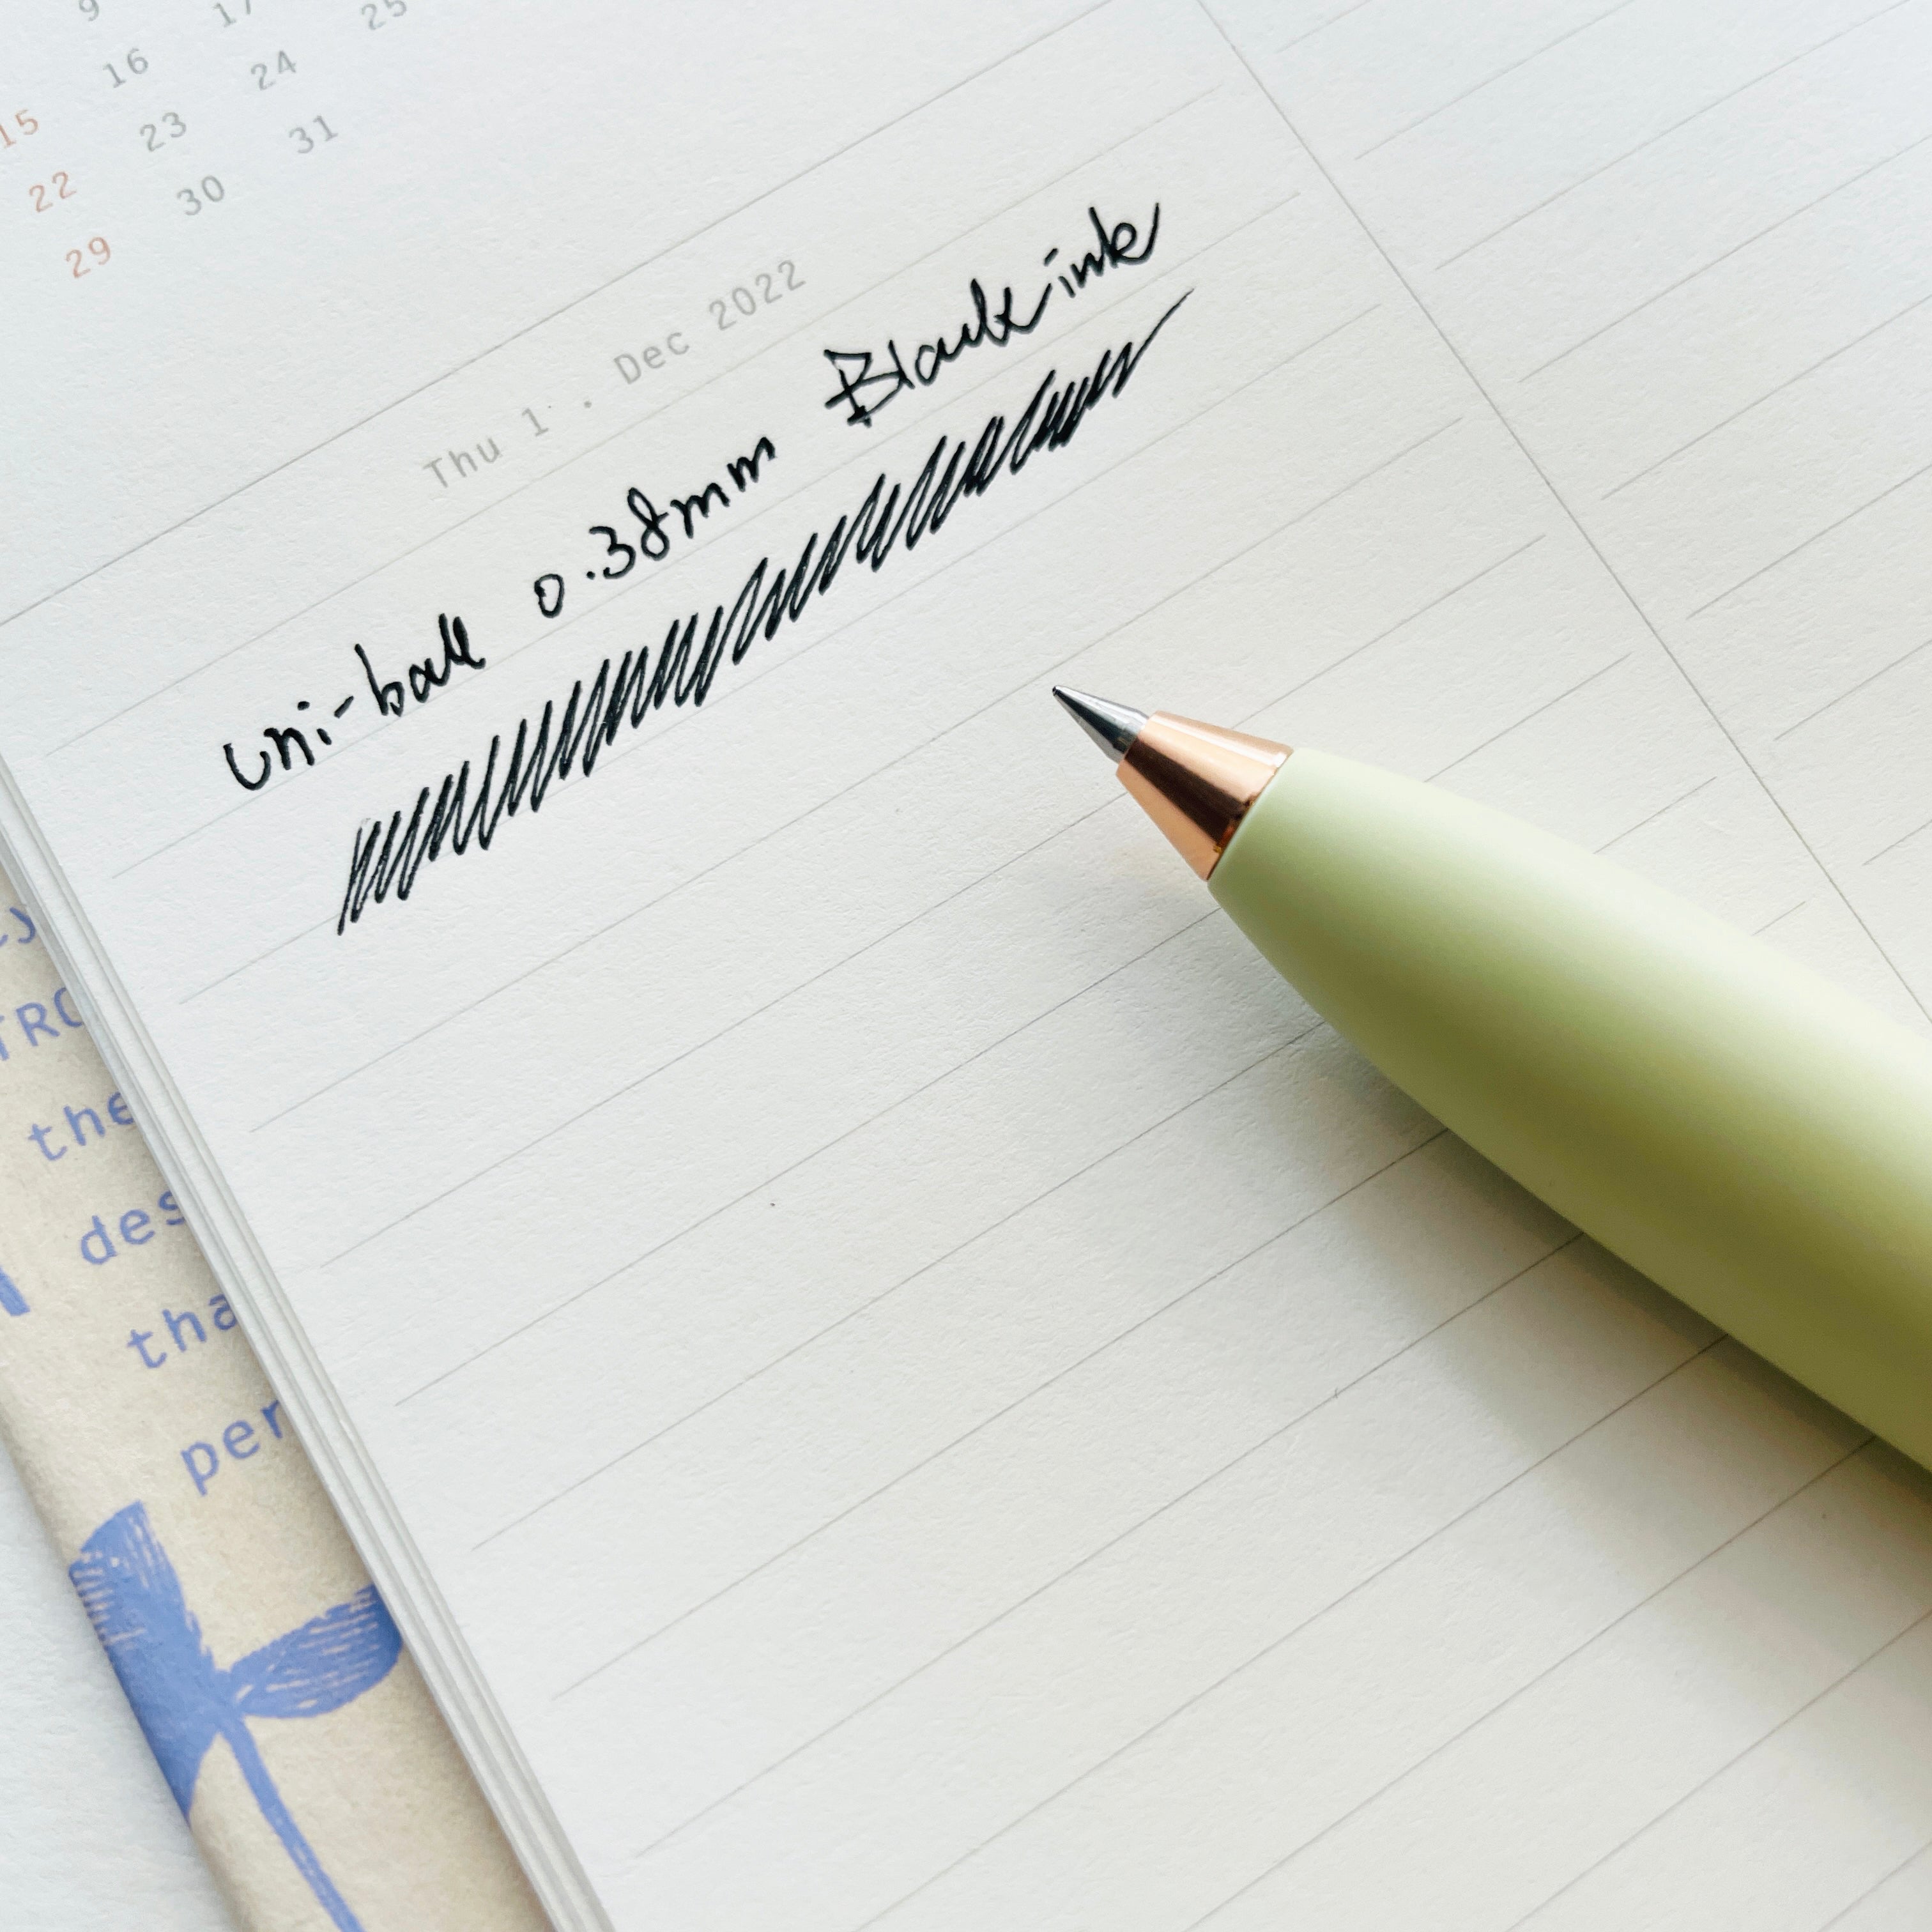 9 17 25
16 24
15 23 31
22 30
29
Thu 1 . Dec 2022
uni-ball 0.38mm Black ink
the
des
tha
per